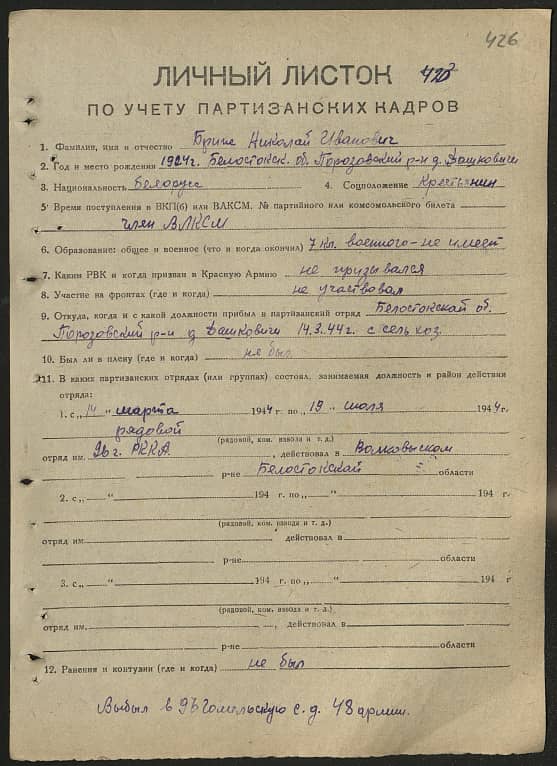 426
ЛИЧНЫЙ ЛИСТОК
ПО УЧЕТУ ПАРТИЗАНСКИХ КАДРОВ
1. Фамилия, имя и отчество Николай Иванович
2. Год и место рождения 1924г. Белостокск. об. Порозовский р-н д. Дашковичи
3. Национальность Белорус 4. Соцположение Крестьянин
5. Время поступления в ВКП(б) или ВЛКСМ, № партийного или комсомольского билета
член ВЛКСМ
6. Образование: общее и военное (что и когда окончил) 7 кл. военного - не имеет
7. Каким РВК и когда призван в Красную Армию не призывался
8. Участие на фронтах (где и когда) не участвовал
9. Откуда, когда и с какой должности прибыл в партизанский отряд Белостокской об.
Порозовский р-н д Дашковичи 14.3.44г. с сель хоз.
10. Был ли в плену (где и когда) не был
11. В каких партизанских отрядах (или группах) состоял, занимаемая должность и район действия
отряда:
1. с „14" марта 1944 г. по „19" июля 1944 г.
рядовой
(рядовой, ком. взвода и т. д.)
отряд им. 26 г. РККА, действовал в Волковыском
р-не Белостокской области
2. с „ " 194 г. по „ " 194 г.
(рядовой, ком. взвода и т. д.)
отряд им. действовал в
р-не области
3. с „ " 194 г. по „ " 194 г
(рядовой, ком. взвода и т. д.)
отряд им. действовал в
р-не области
12. Ранения и контузии (где и когда) не был
Выбыл в Гомельскую с. д. 48 армии.